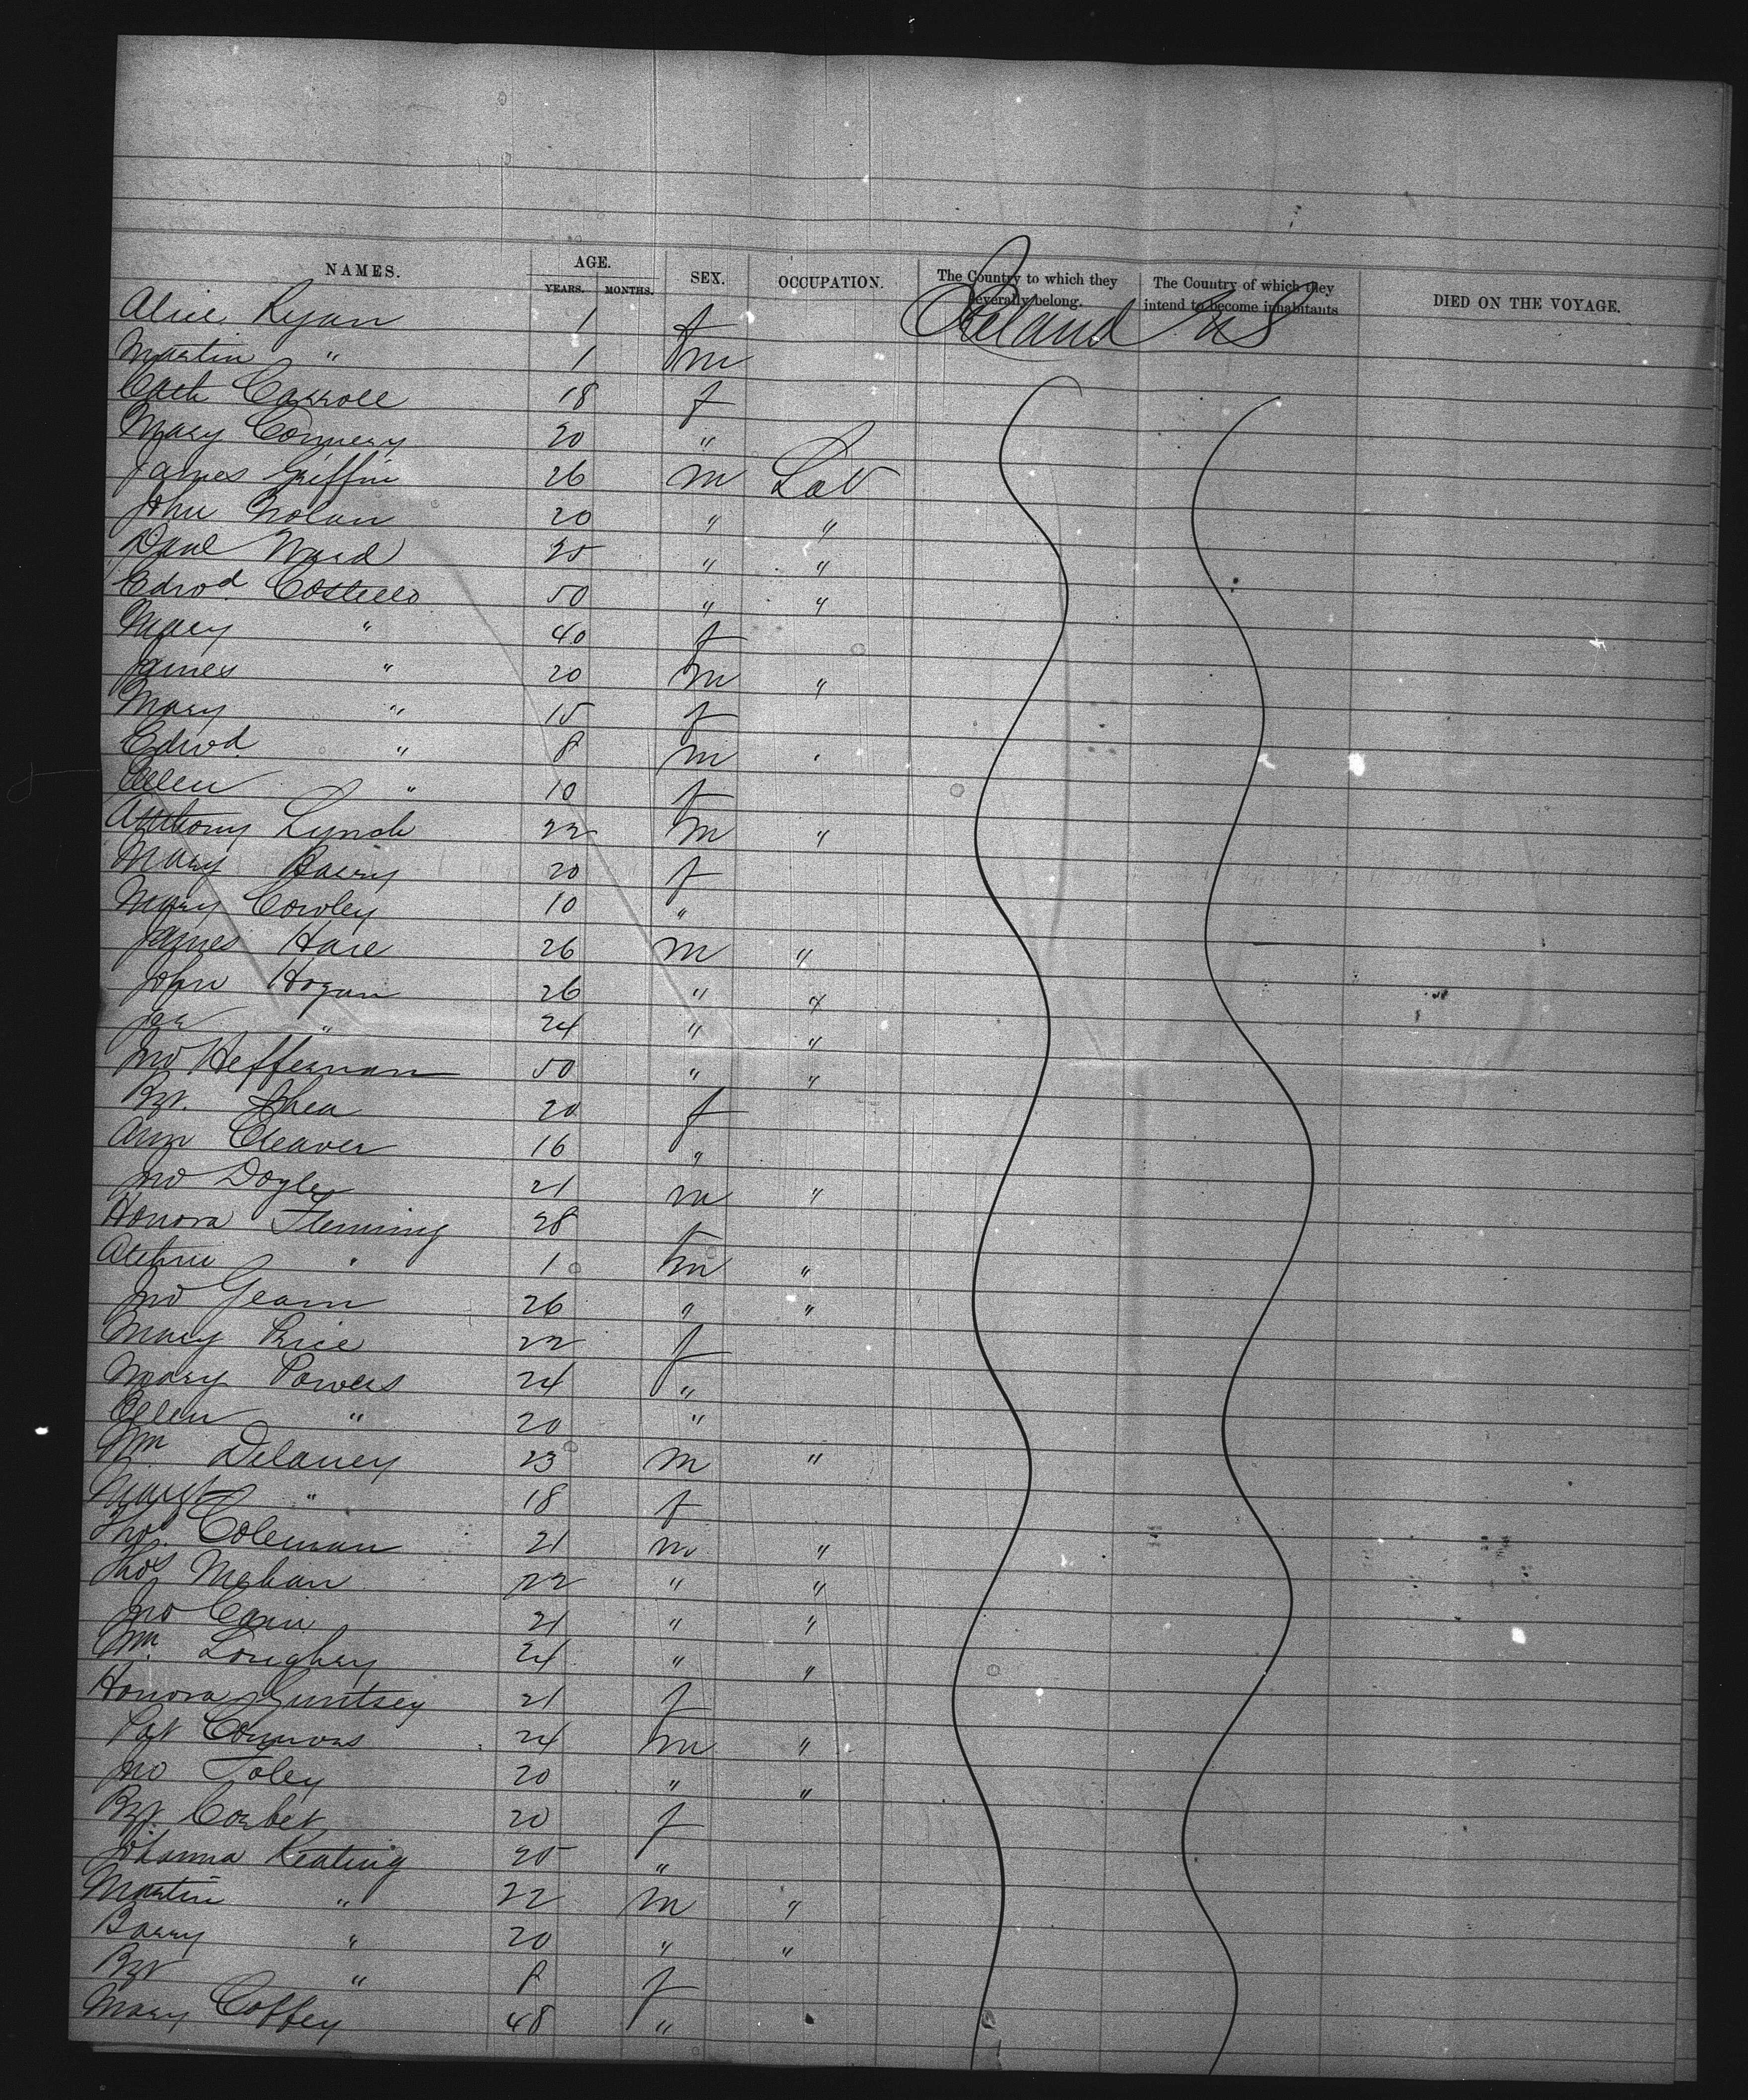 NAMES. AGE. SEX. OCCUPATION. The Country to which they severally belong. The Country of which they intend to become inhabitants DIED ON THE VOYAGE.
YEARS. MONTHS.
Alice Ryan 1 f Ireland U S
Martin " 1 m
Cath Carroll 18 f
Mary Connery 20 "
James Griffin 26 m Lab
John Nolan 20 " "
Danl Ward 25 " "
Edwd Costello 50 " "
Mary " 40 f
James " 20 m "
Mary " 15 f
Edwd " 8 m
Ellen " 10 f
Anthony Lynch 22 m "
Mary Barry 20 f
Mary Cowley 10 "
James Hare 26 m "
John Hogan 26 " "
" 24 " "
Jno Heffernan 50 " "
Bgt. Shea 20 f
Ann Cleaver 16 "
Jno Doyle 21 m "
Honora Fleming 28 f
" 1 m "
Jno 26 " "
Mary Rice 22 f
Mary Powers 24 "
Ellen " 20 "
Wm Delaney 23 m "
Margt " 18 f
Thos. Coleman 21 m "
Thos Mehan 22 " "
Jno Cain 21 " "
Wm Loughery 24 " "
Honora 21 f
Pat Connors 24 m "
Jno Foley 20 " "
Bgt. Corbet 20 f
Johanna Keating 25 "
Martin " 22 m "
Barry " 20 " "
Bgt " 8 f
Mary Coffey 48 "